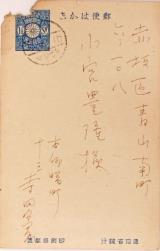 郵便はがき
赤坂区青山南町
六ノ一〇八
小宮豊隆様
本郷曙町
十三 寺田寅彦